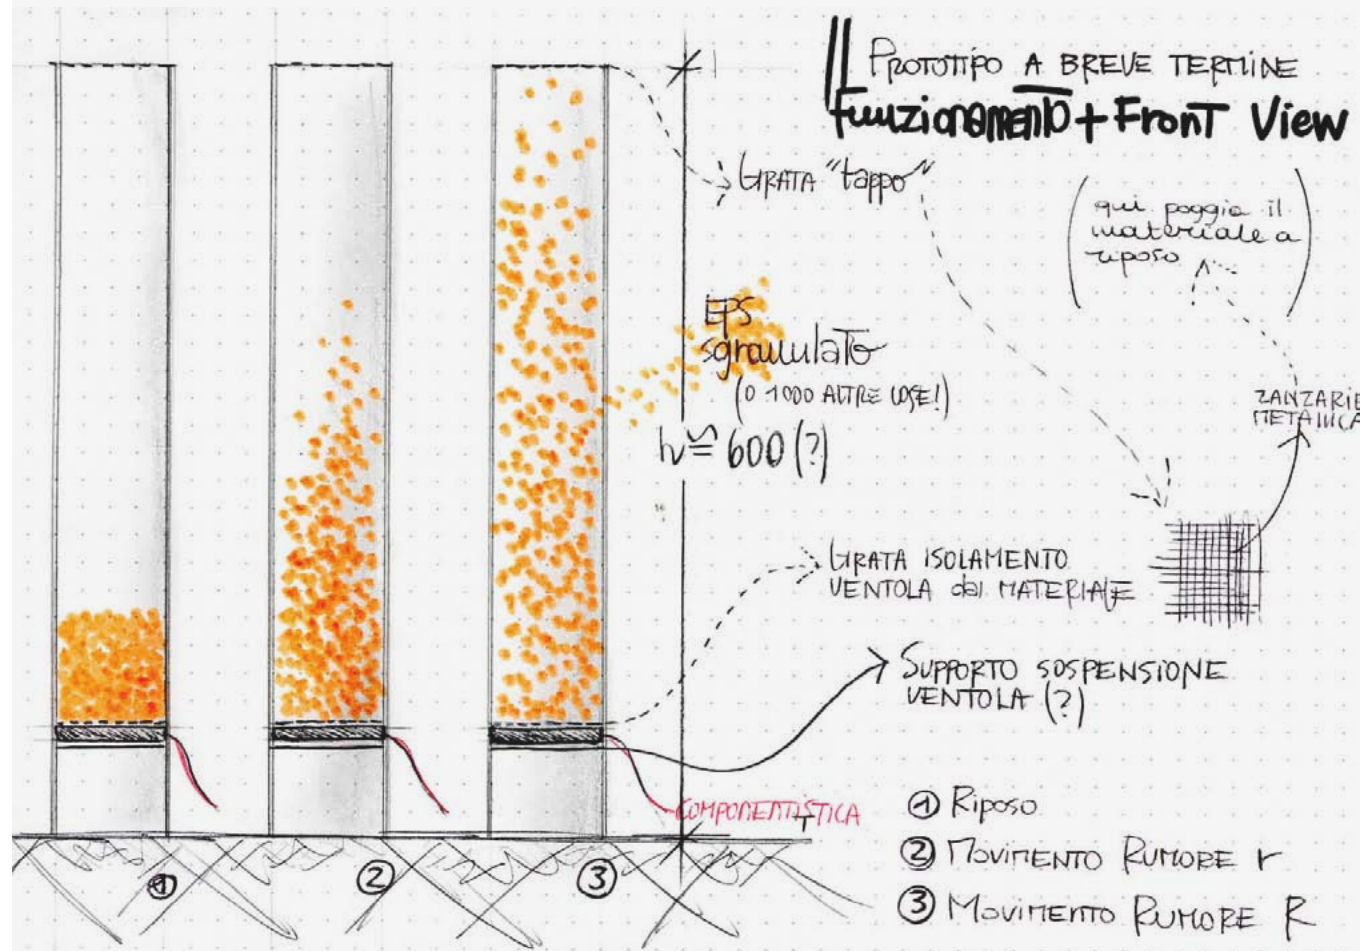 PROTOTIPO A BREVE TERMINE
Funzionamento + Front View
GRATA "tappo"
(qui poggia il
materiale a
riposo)
EPS
sgranulato
(O 1000 ALTRE COSE!)
h ≅ 600 (?)
ZANZARIE
METALLICA
GRATA ISOLAMENTO
VENTOLA dal MATERIALE
SUPPORTO SOSPENSIONE
VENTOLA (?)
COMPONENTISTICA
① Riposo
② MOVIMENTO RUMORE r
③ MOVIMENTO RUMORE R
① ② ③